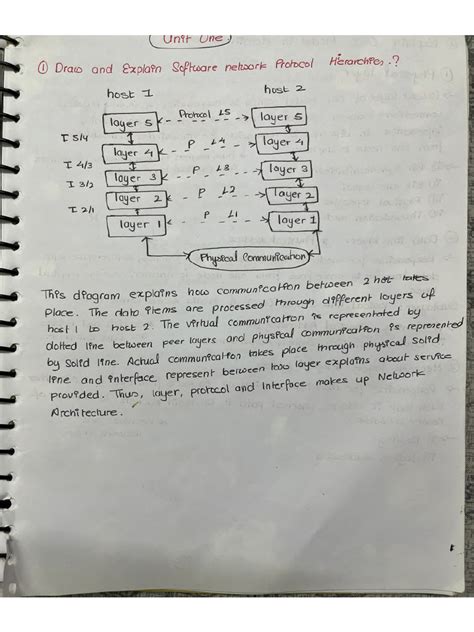 Unit One
① Draw and Explain Software network Protocol Hierarchies.?
host 1 host 2
layer 5 Protocol L5 layer 5
I 5/4
layer 4 P L4 layer 4
I 4/3
layer 3 P L3 layer 3
I 3/2
layer 2 P L2 layer 2
I 2/1
layer 1 P L1 layer 1
Physical Communication
This diagram explains how communication between 2 hot takes
Place. The data items are processed through different layers of
host 1 to host 2. The virtual communication is reprecentated by
dotted line between peer layers and physical communication is reprerented
by Solid line. Actual communication takes place through physical Solid
line and interface represent between low layer explains about service
provided. Thus, layer, protocol and Interface makes up Network
Architecture.